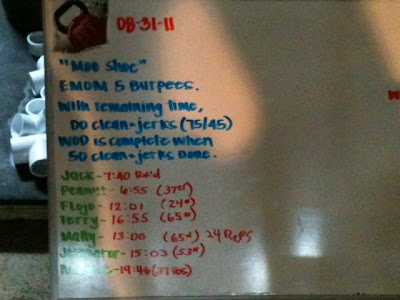 08-31-11
"Moo Shoc"
EMOM 5 Burpees.
With remaining time,
Do clean+jerks (75/45)
WOD is complete when
50 clean+jerks Done.
Jack - 7:40 Rx'd
Peanut - 6:55 (37#)
FloJo - 12:01 (24#)
Terry - 16:55 (65#)
Matty - 13:00 (65#) 24 Reps
- 15:03 (53#)
- 19:46 (37 lbs)